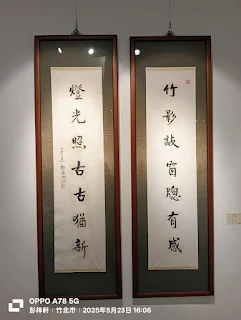 竹影敲窗聰有感
燈光照古古猶新
OPPO A78 5G
彭梓軒｜竹北市｜2025年5月23日 16:06